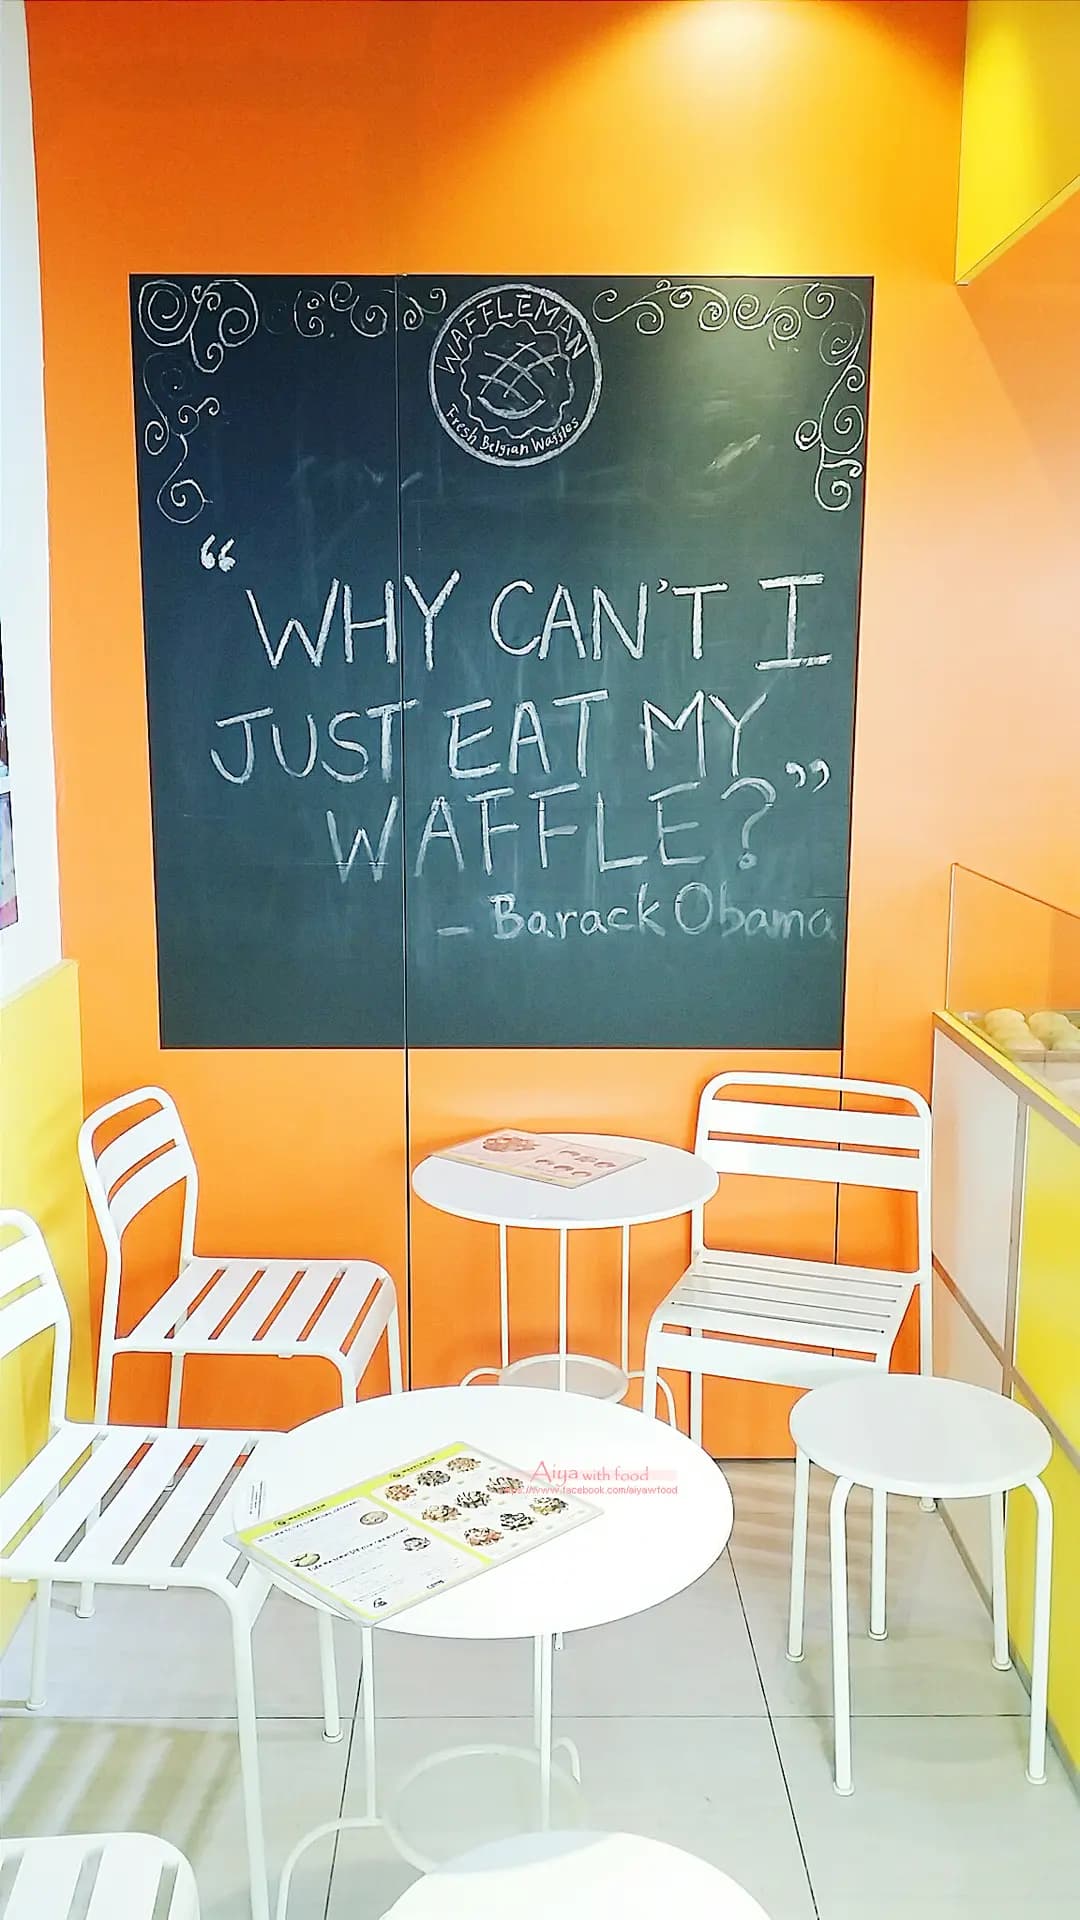 WAFFLEMAN
Fresh Belgian Waffles
“WHY CAN'T I
JUST EAT MY
WAFFLE?”
- Barack Obama
WAFFLEMAN
WAFFLEMAN
Aiya with food
www.facebook.com/aiyawfood